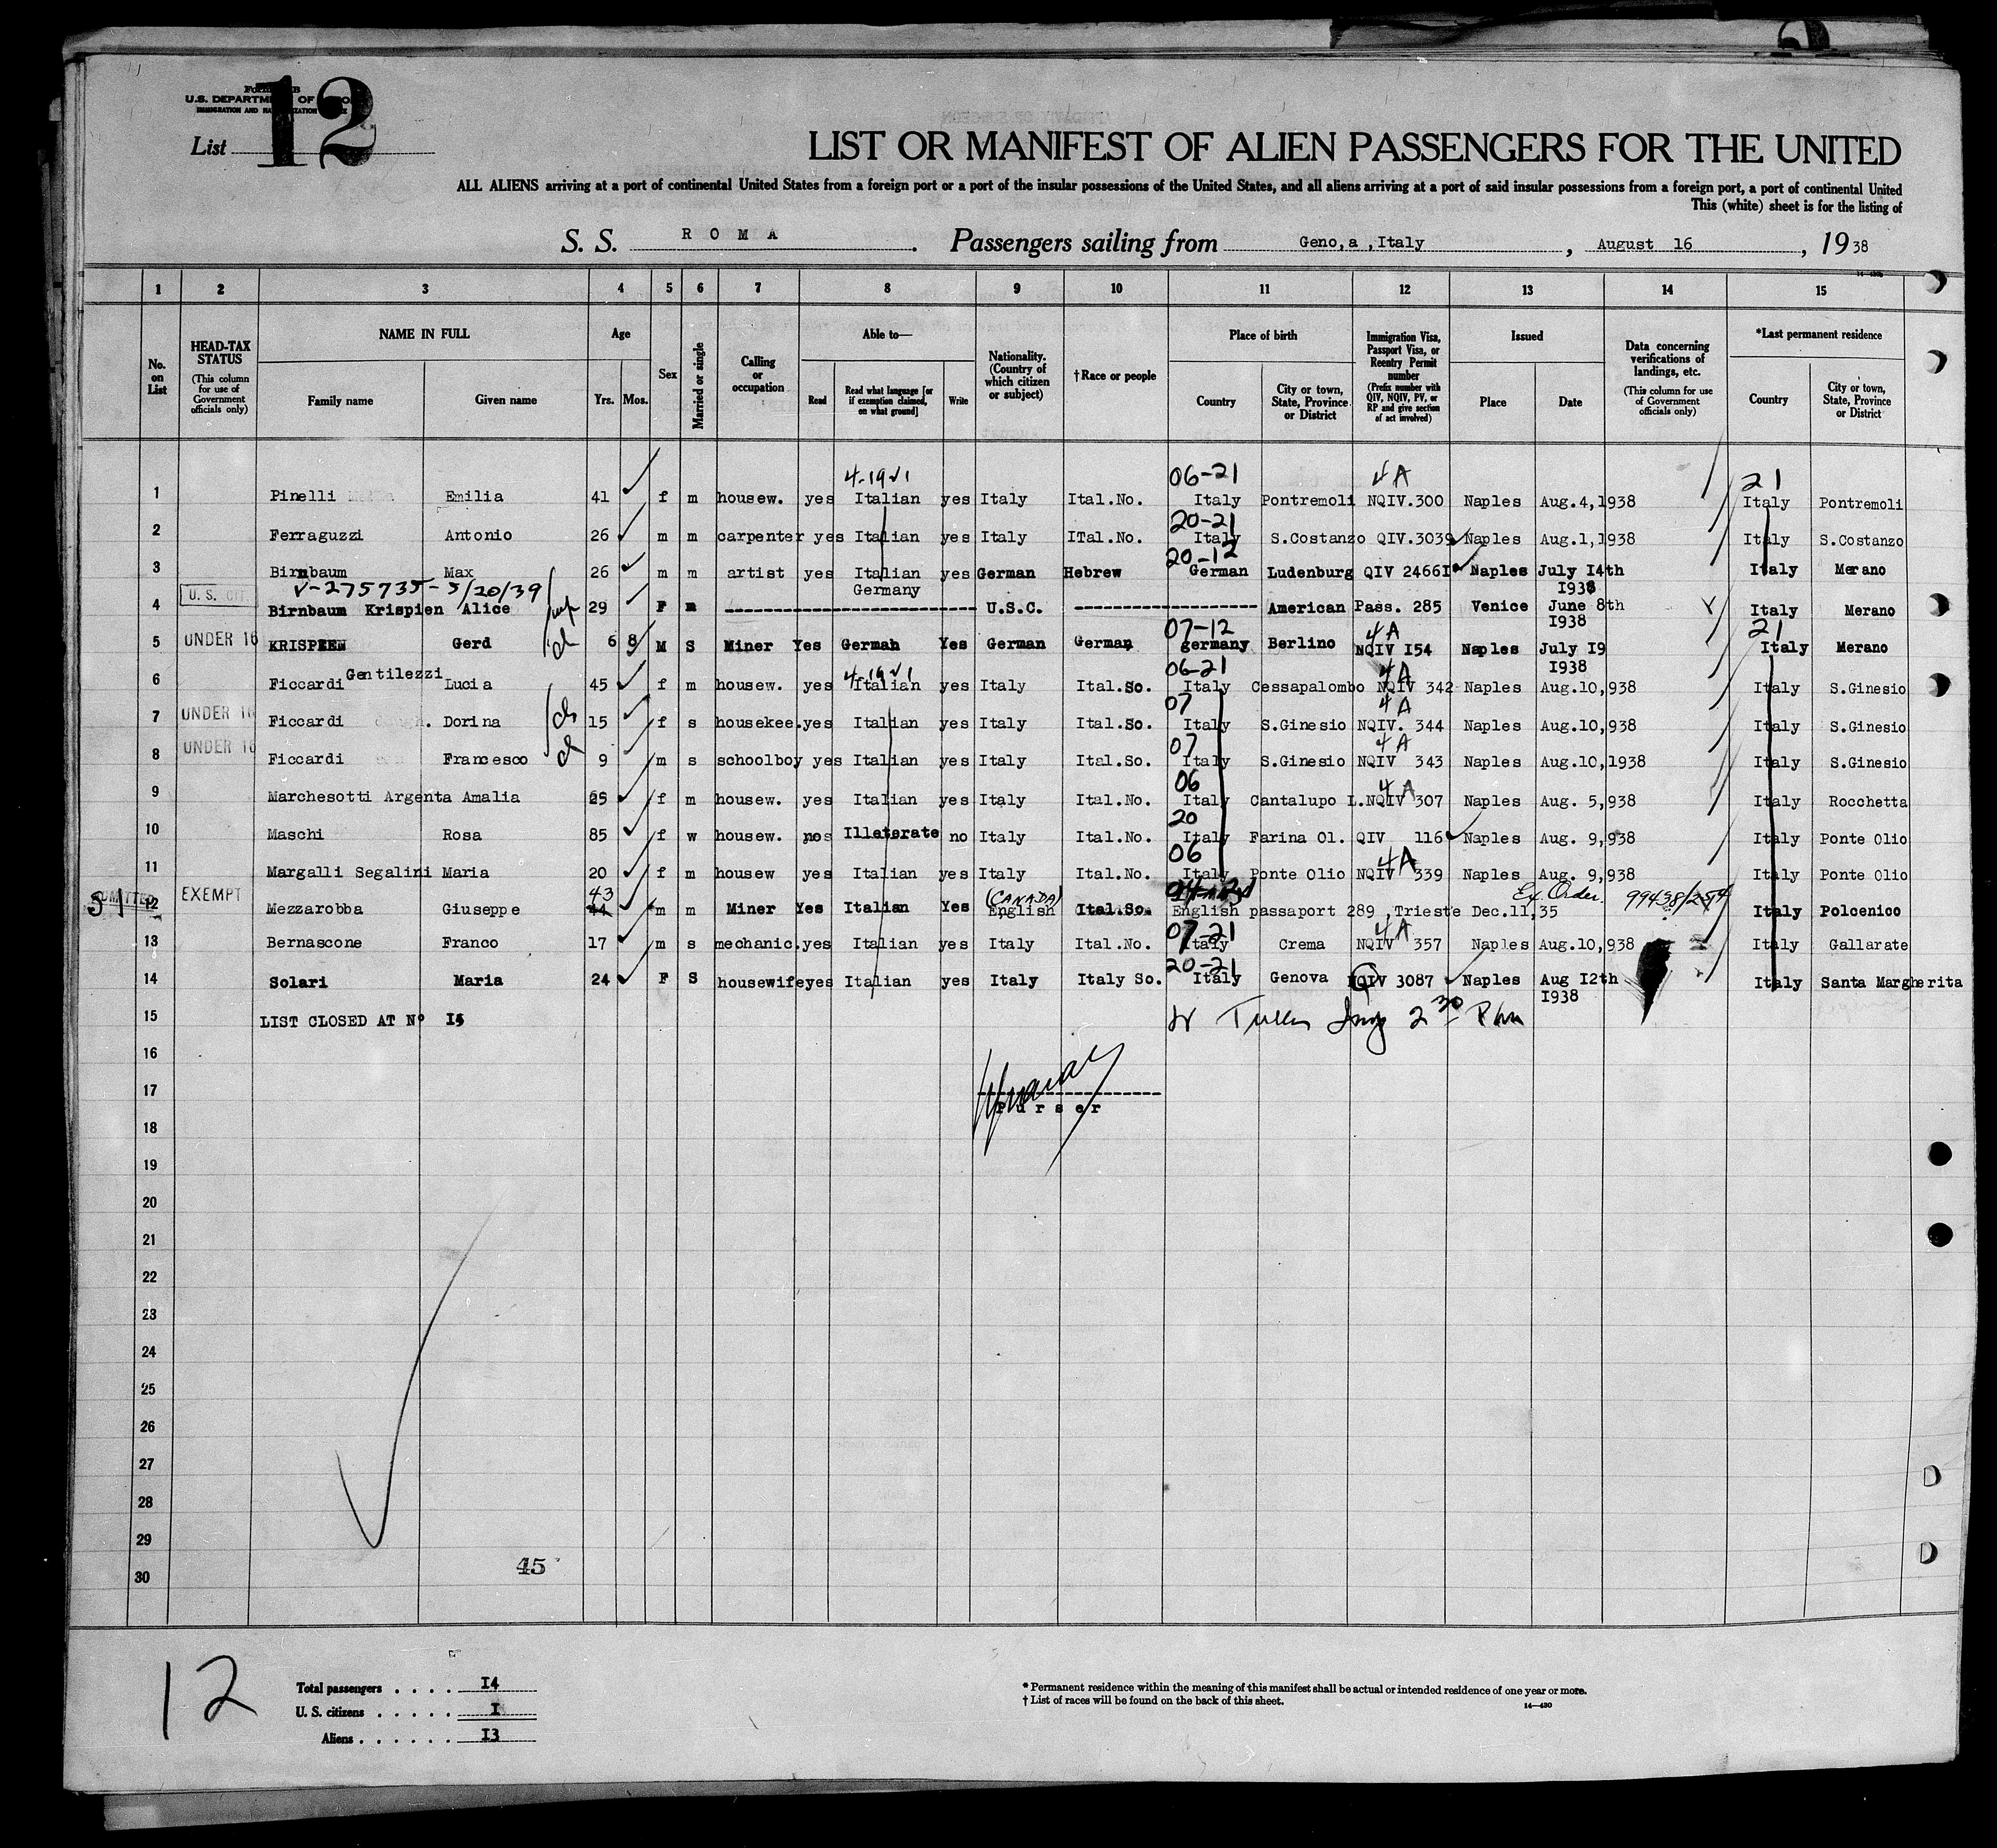 U.S. DEPARTM OF
List 12
LIST OR MANIFEST OF ALIEN PASSENGERS FOR THE UNITED
ALL ALIENS arriving at a port of continental United States from a foreign port or a port of the insular possessions of the United States, and all aliens arriving at a port of said insular possessions from a foreign port, a port of continental United
This (white) sheet is for the listing of
S. S. ROMA . Passengers sailing from Geno,a ,Italy , August 16 , 1938
1 2 3 4 5 6 7 8 9 10 11 12 13 14 15
No. on List
HEAD-TAX STATUS (This column for use of Government officials only)
NAME IN FULL Family name Given name
Age Yrs. Mos.
Sex
Married or single
Calling or occupation
Able to— Read Read what language [or if exemption claimed, on what ground] Write
Nationality. (Country of which citizen or subject)
†Race or people
Place of birth Country City or town, State, Province or District
Immigration Visa, Passport Visa, or Reentry Permit number (Prefix number with QIV, NQIV, PV, or RP and give section of act involved)
Issued Place Date
Data concerning verifications of landings, etc. (This column for use of Government officials only)
*Last permanent residence Country City or town, State, Province or District
4-19 1 06-21 4A 21
1 Pinelli Emilia 41 f m housew. yes Italian yes Italy Ital.No. Italy Pontremoli NQIV.300 Naples Aug.4,1938 Italy Pontremoli
20-21
2 Ferraguzzi Antonio 26 m m carpenter yes Italian yes Italy ITal.No. Italy S.Costanzo QIV.3039 Naples Aug.1,1938 Italy S.Costanzo
20-12
3 Birnbaum Max 26 m m artist yes Italian Germany yes German Hebrew German Ludenburg QIV 24661 Naples July I4th I938 Italy Merano
U. S. CIT. V-275735-5/20/39
4 Birnbaum Krispien Alice 29 F m U.S.C. American Pass. 285 Venice June 8th I938 Italy Merano
07-12 4A 21
5 UNDER 16 KRISPEEN Gerd 6 8 M S Miner Yes German Yes German German germany Berlino NQIV I54 Naples July I9 I938 Italy Merano
4-19 1 06-21 4A
6 Ficcardi Gentilezzi Lucia 45 f m housew. yes Italian yes Italy Ital.So. Italy Cessapalombo NQIV 342 Naples Aug.10,938 Italy S.Ginesio
07 4A
7 UNDER 16 Ficcardi Dorina 15 f s housekee.yes Italian yes Italy Ital.So. Italy S.Ginesio NQIV. 344 Naples Aug.10,938 Italy S.Ginesio
07 4A
8 UNDER 16 Ficcardi Francesco 9 m s schoolboy yes Italian yes Italy Ital.So. Italy S.Ginesio NQIV 343 Naples Aug.10,1938 Italy S.Ginesio
06 4A
9 Marchesotti Argenta Amalia 25 f m housew. yes Italian yes Italy Ital.No. Italy Cantalupo L.NQIV 307 Naples Aug. 5,938 Italy Rocchetta
20
10 Maschi Rosa 85 f w housew. no Illeterate no Italy Ital.No. Italy Farina Ol. QIV 116 Naples Aug. 9,938 Italy Ponte Olio
06 4A
11 Margalli Segalini Maria 20 f m housew yes Italian yes Italy Ital.No. Italy Ponte Olio NQIV 339 Naples Aug. 9,938 Italy Ponte Olio
43 (CANADA) Ex. Order. 99438/254
12 EXEMPT Mezzarobba Giuseppe 44 m m Miner Yes Italian Yes English Ital.So. English passaport 289 ,Trieste Dec.11,35 Italy Polcenico
07-21 4A
13 Bernascone Franco 17 m s mechanic.yes Italian yes Italy Ital.No. Italy Crema NQIV 357 Naples Aug.10,938 Italy Gallarate
20-21
14 Solari Maria 24 F S housewifeyes Italian yes Italy Italy So. Italy Genova QIV 3087 Naples Aug I2th I938 Italy Santa Margherita
15 LIST CLOSED AT Nº I5
16
17
Purser
18
19
20
21
22
23
24
25
26
27
28
29
45
30
12
Total passengers . . . . I4
U. S. citizens . . . . . I
Aliens . . . . . . I3
* Permanent residence within the meaning of this manifest shall be actual or intended residence of one year or more.
† List of races will be found on the back of this sheet.
14—430